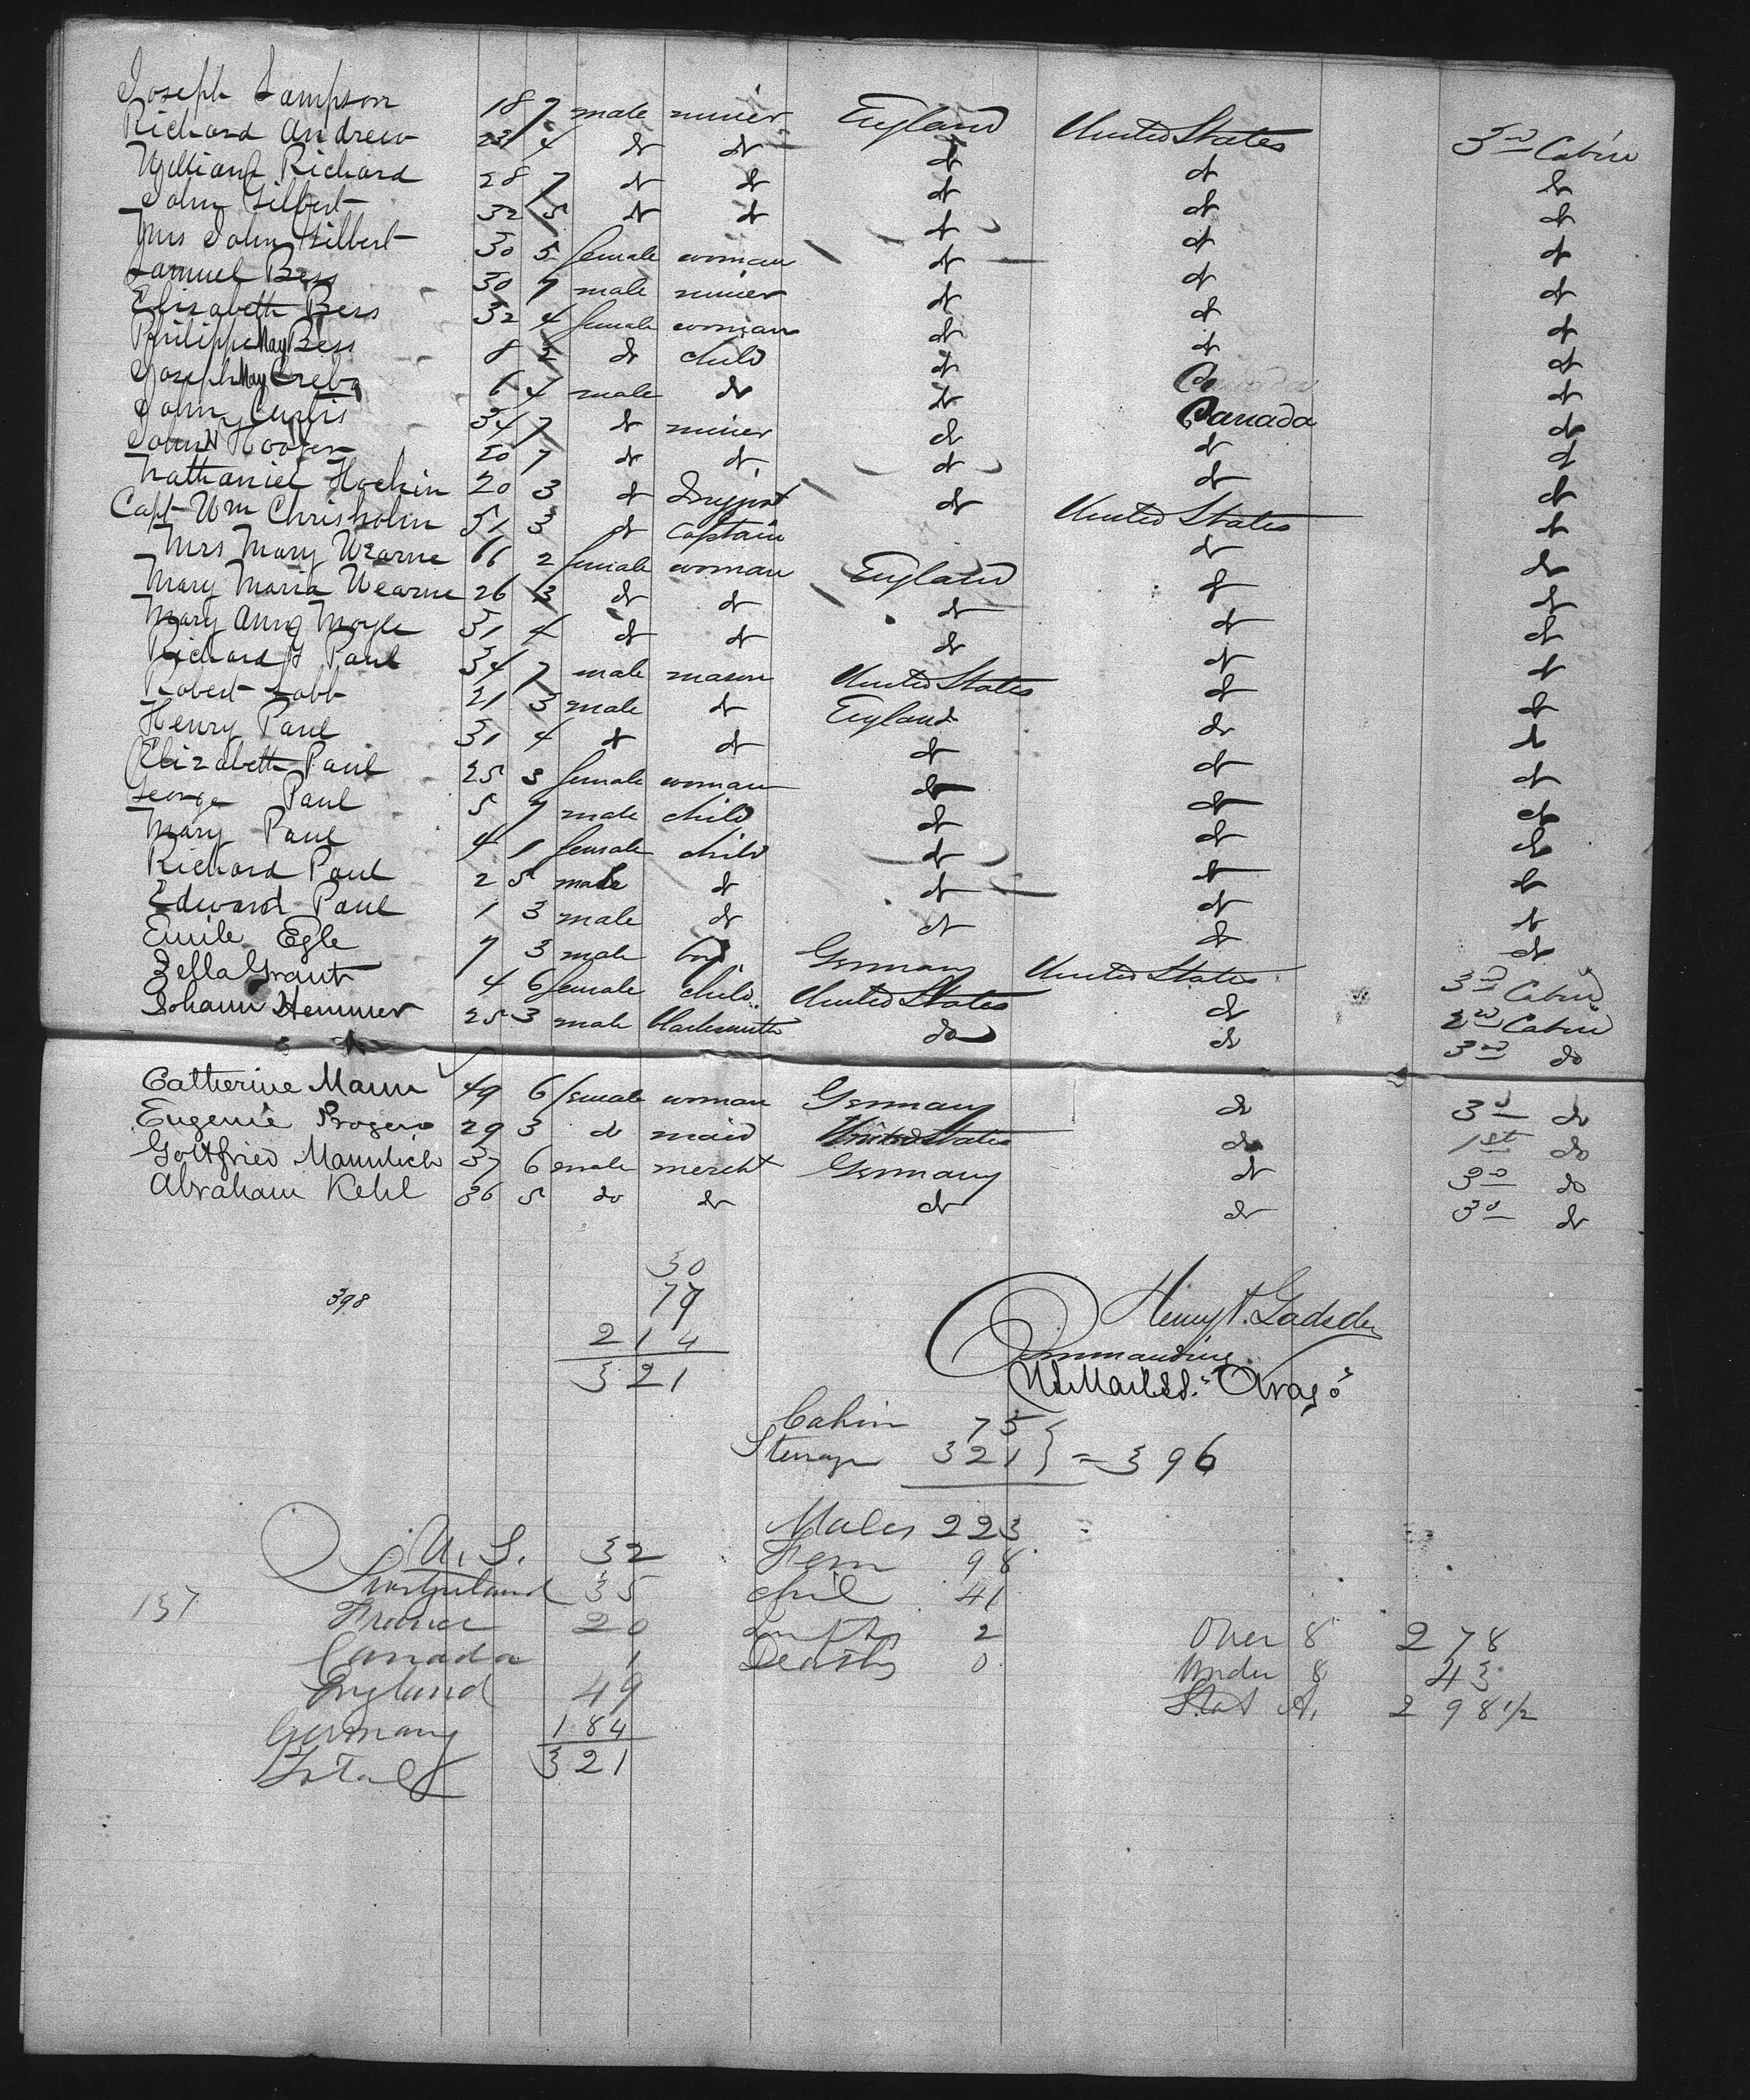 Joseph Sampson 18 7 male miner England United States 3rd Cabin
Richard Andrew 23 4 do do do do do
William Richard 28 7 do do do do do
John Gilbert 32 5 do do do do do
Mrs John Gilbert 30 5 female woman do do do
Samuel Bess 30 7 male miner do do do
Elisabeth Bess 32 4 female woman do do do
Philippi May Bess 8 do child do do do
Joseph May Creba 6 4 male do do do
John Curtis 34 7 do miner do Canada do
John N Hooper 20 7 do do do do do
Nathaniel Hockin 20 3 do Druggist do do do
Capt Wm Chrisholm 51 3 do Captain United States do
Mrs Mary Wearne 66 2 female woman England do do
Mary Maria Wearne 26 3 do do do do do
Mary Ann Moyle 31 4 do do do do do
Richard J Paul 34 7 male mason United States do do
Robert Lobb 21 3 male do England do do
Henry Paul 31 4 do do do do do
Elizabeth Paul 25 3 female woman do do do
George Paul 5 7 male child do do do
Mary Paul 4 1 female child do do do
Richard Paul 2 5 male do do do do
Edward Paul 1 3 male do do do do
Emile Egle 7 3 male boy Germany United States 3rd Cabin
Zella Grant 4 6 female child United States do 2nd Cabin
Johann Hemmer 25 3 male blacksmith do do 3rd do
Catherine Mann 49 6 female woman Germany do 3d do
Eugenie Rogers 29 3 do maid United States do 1st do
Gottfried Mannlich 37 6 male mercht Germany do 3d do
Abraham Kehl 36 5 do do do do 3d do
30
398 77
214
321
Henry A. Gadsden
Commanding
U S Mail S.S. "Arago"
Cabin 75
Sterage 321 } = 396
Males 223
U.S. 32 Fem 98
Switzerland 35 chil 41
137 France 20 Infts 2 Over 8 278
Canada 1 Deaths 0 Under 8 43
England 49 Stat A. 298 1/2
Germany 184
Total 321